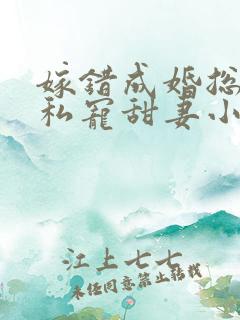 嫁错成婚总
私宠甜妻小
江上七七
未经同意禁止转载